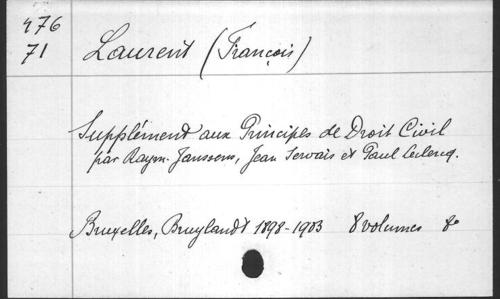 476 Laurent (François)
71
Supplément aux Principes de Droit Civil
par Raym. Janssens, Jean Servais et Paul Leclercq.
Bruxelles, Bruylandt 1898-1903 8 volumes 8º